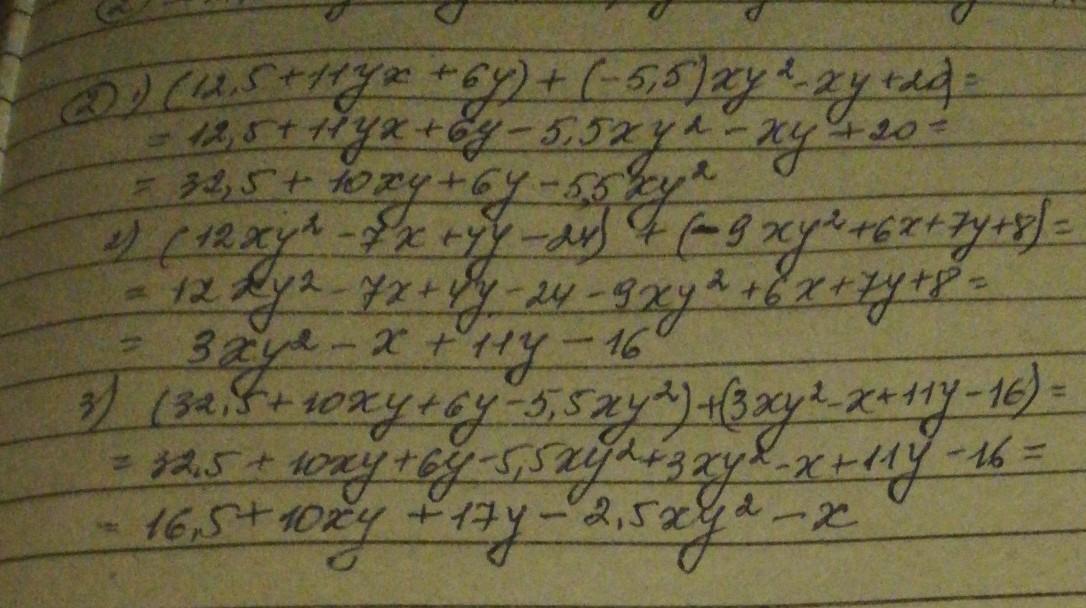 ② 1) (12,5+11yx+6y)+(-5,5)xy²-xy+20)=
=12,5+11yx+6y-5,5xy²-xy+20=
=32,5+10xy+6y-5,5xy²
2) (12xy²-7x+4y-24)+(-9xy²+6x+7y+8)=
=12xy²-7x+4y-24-9xy²+6x+7y+8=
= 3xy²-x+11y-16
3) (32,5+10xy+6y-5,5xy²)+(3xy²-x+11y-16)=
=32,5+10xy+6y-5,5xy²+3xy²-x+11y-16=
=16,5+10xy+17y-2,5xy²-x